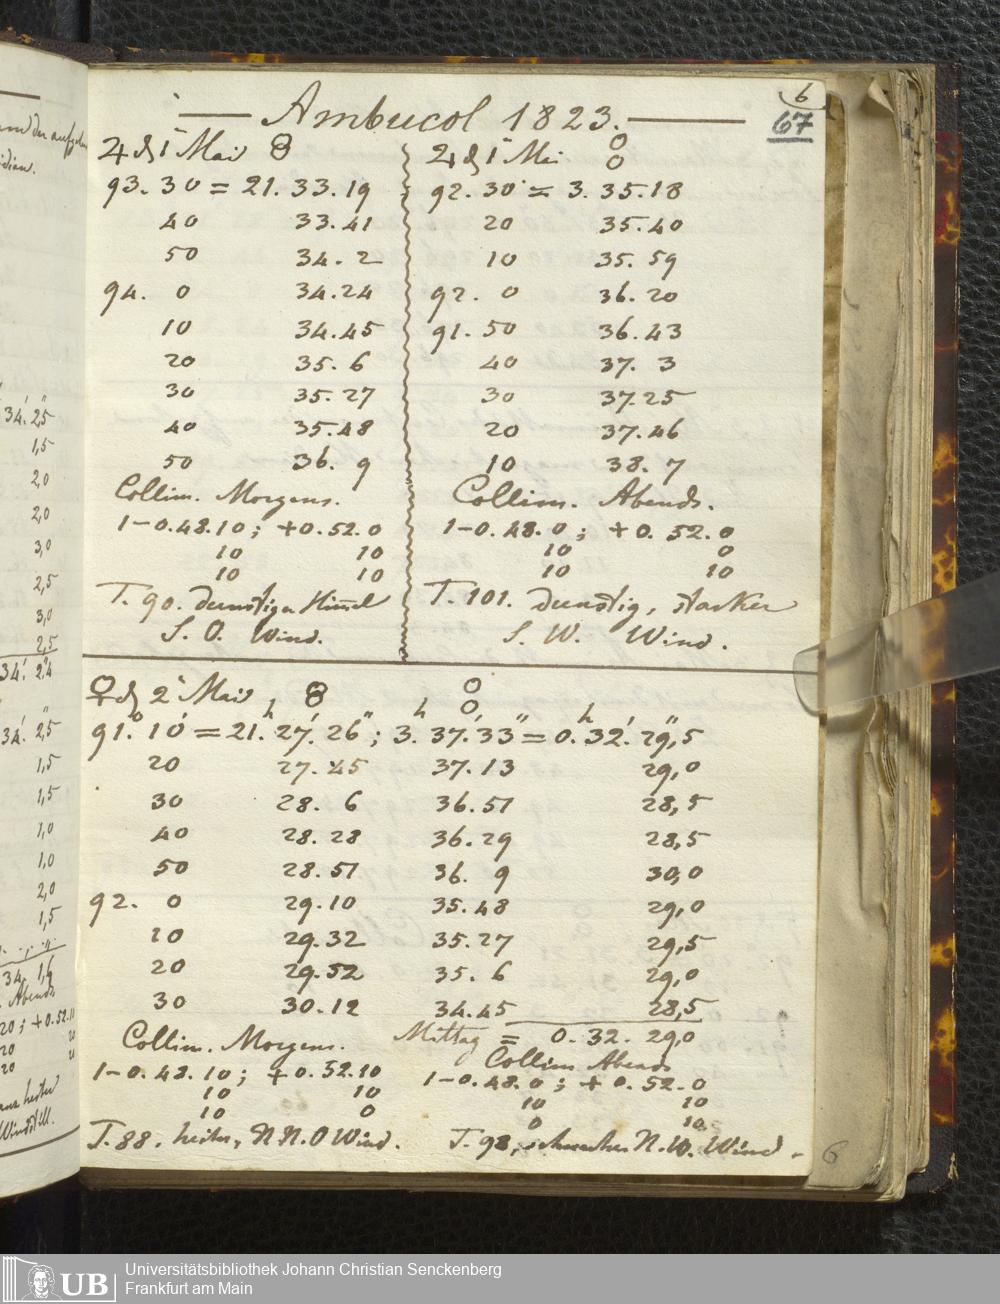 6
— Ambucol 1823. —
67
♃ d 1 Mai
93. 30 = 21. 33. 19
40 33. 41
50 34. 2
94. 0 34. 24
10 34. 45
20 35. 6
30 35. 27
40 35. 48
50 36. 9
Collim. Morgens.
1-0. 48. 10; +0. 52. 0
10 10
10 10
T. 90. dunstiger Himmel
S. O. Wind.
♃ d 1 Mai
92. 30 = 3. 35. 18
20 35. 40
10 35. 59
92. 0 36. 20
91. 50 36. 43
40 37. 3
30 37. 25
20 37. 46
10 38. 7
Collim. Abends.
1-0. 48. 0; +0. 52. 0
10 0
10 10
T. 101. dunstig, starker
S. W. Wind.
♀ d 2 Mai
91.° 10′ = 21.h 27.′ 26″; 3.h 37.′ 33″ = 0.h 32.′ 29,″5
20 27. 45 37. 13 29,0
30 28. 6 36. 51 28,5
40 28. 28 36. 29 28,5
50 28. 51 36. 9 30,0
92. 0 29. 10 35. 48 29,0
10 29. 32 35. 27 29,5
20 29. 52 35. 6 29,0
30 30. 12 34. 45 28,5
Mittag = 0. 32. 29,0
Collim. Morgens.
1-0. 48. 10; +0. 52. 10
10 10
10 0
T. 88. heiter, N N. O Wind.
Collim Abends
1-0. 48. 0; +0. 52. 0
10 10
0 10
T. 98, schwacher N. W. Wind.
6
34.′ 2,″5
1,5
2,0
2,0
3,0
2,5
3,0
2,5
34.′ 2,″4
34.′ 2,″5
1,5
1,5
1,0
1,0
2,0
1,5
34. 1,6
Abends
20; +0. 52. 11
20
20
heiter
Windstill.
UB
Universitätsbibliothek Johann Christian Senckenberg
Frankfurt am Main